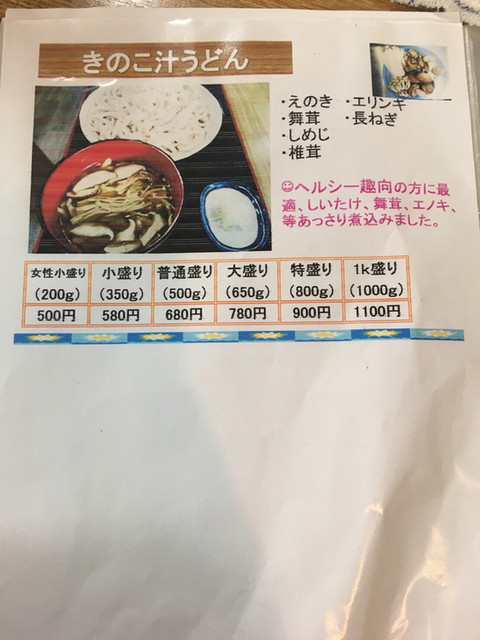 きのこ汁うどん
・えのき ・エリンギ
・舞茸 ・長ねぎ
・しめじ
・椎茸
☺ヘルシー趣向の方に最
適、しいたけ、舞茸、エノキ、
等あっさり煮込みました。
女性小盛り 小盛り 普通盛り 大盛り 特盛り 1k盛り
(200g) (350g) (500g) (650g) (800g) (1000g)
500円 580円 680円 780円 900円 1100円